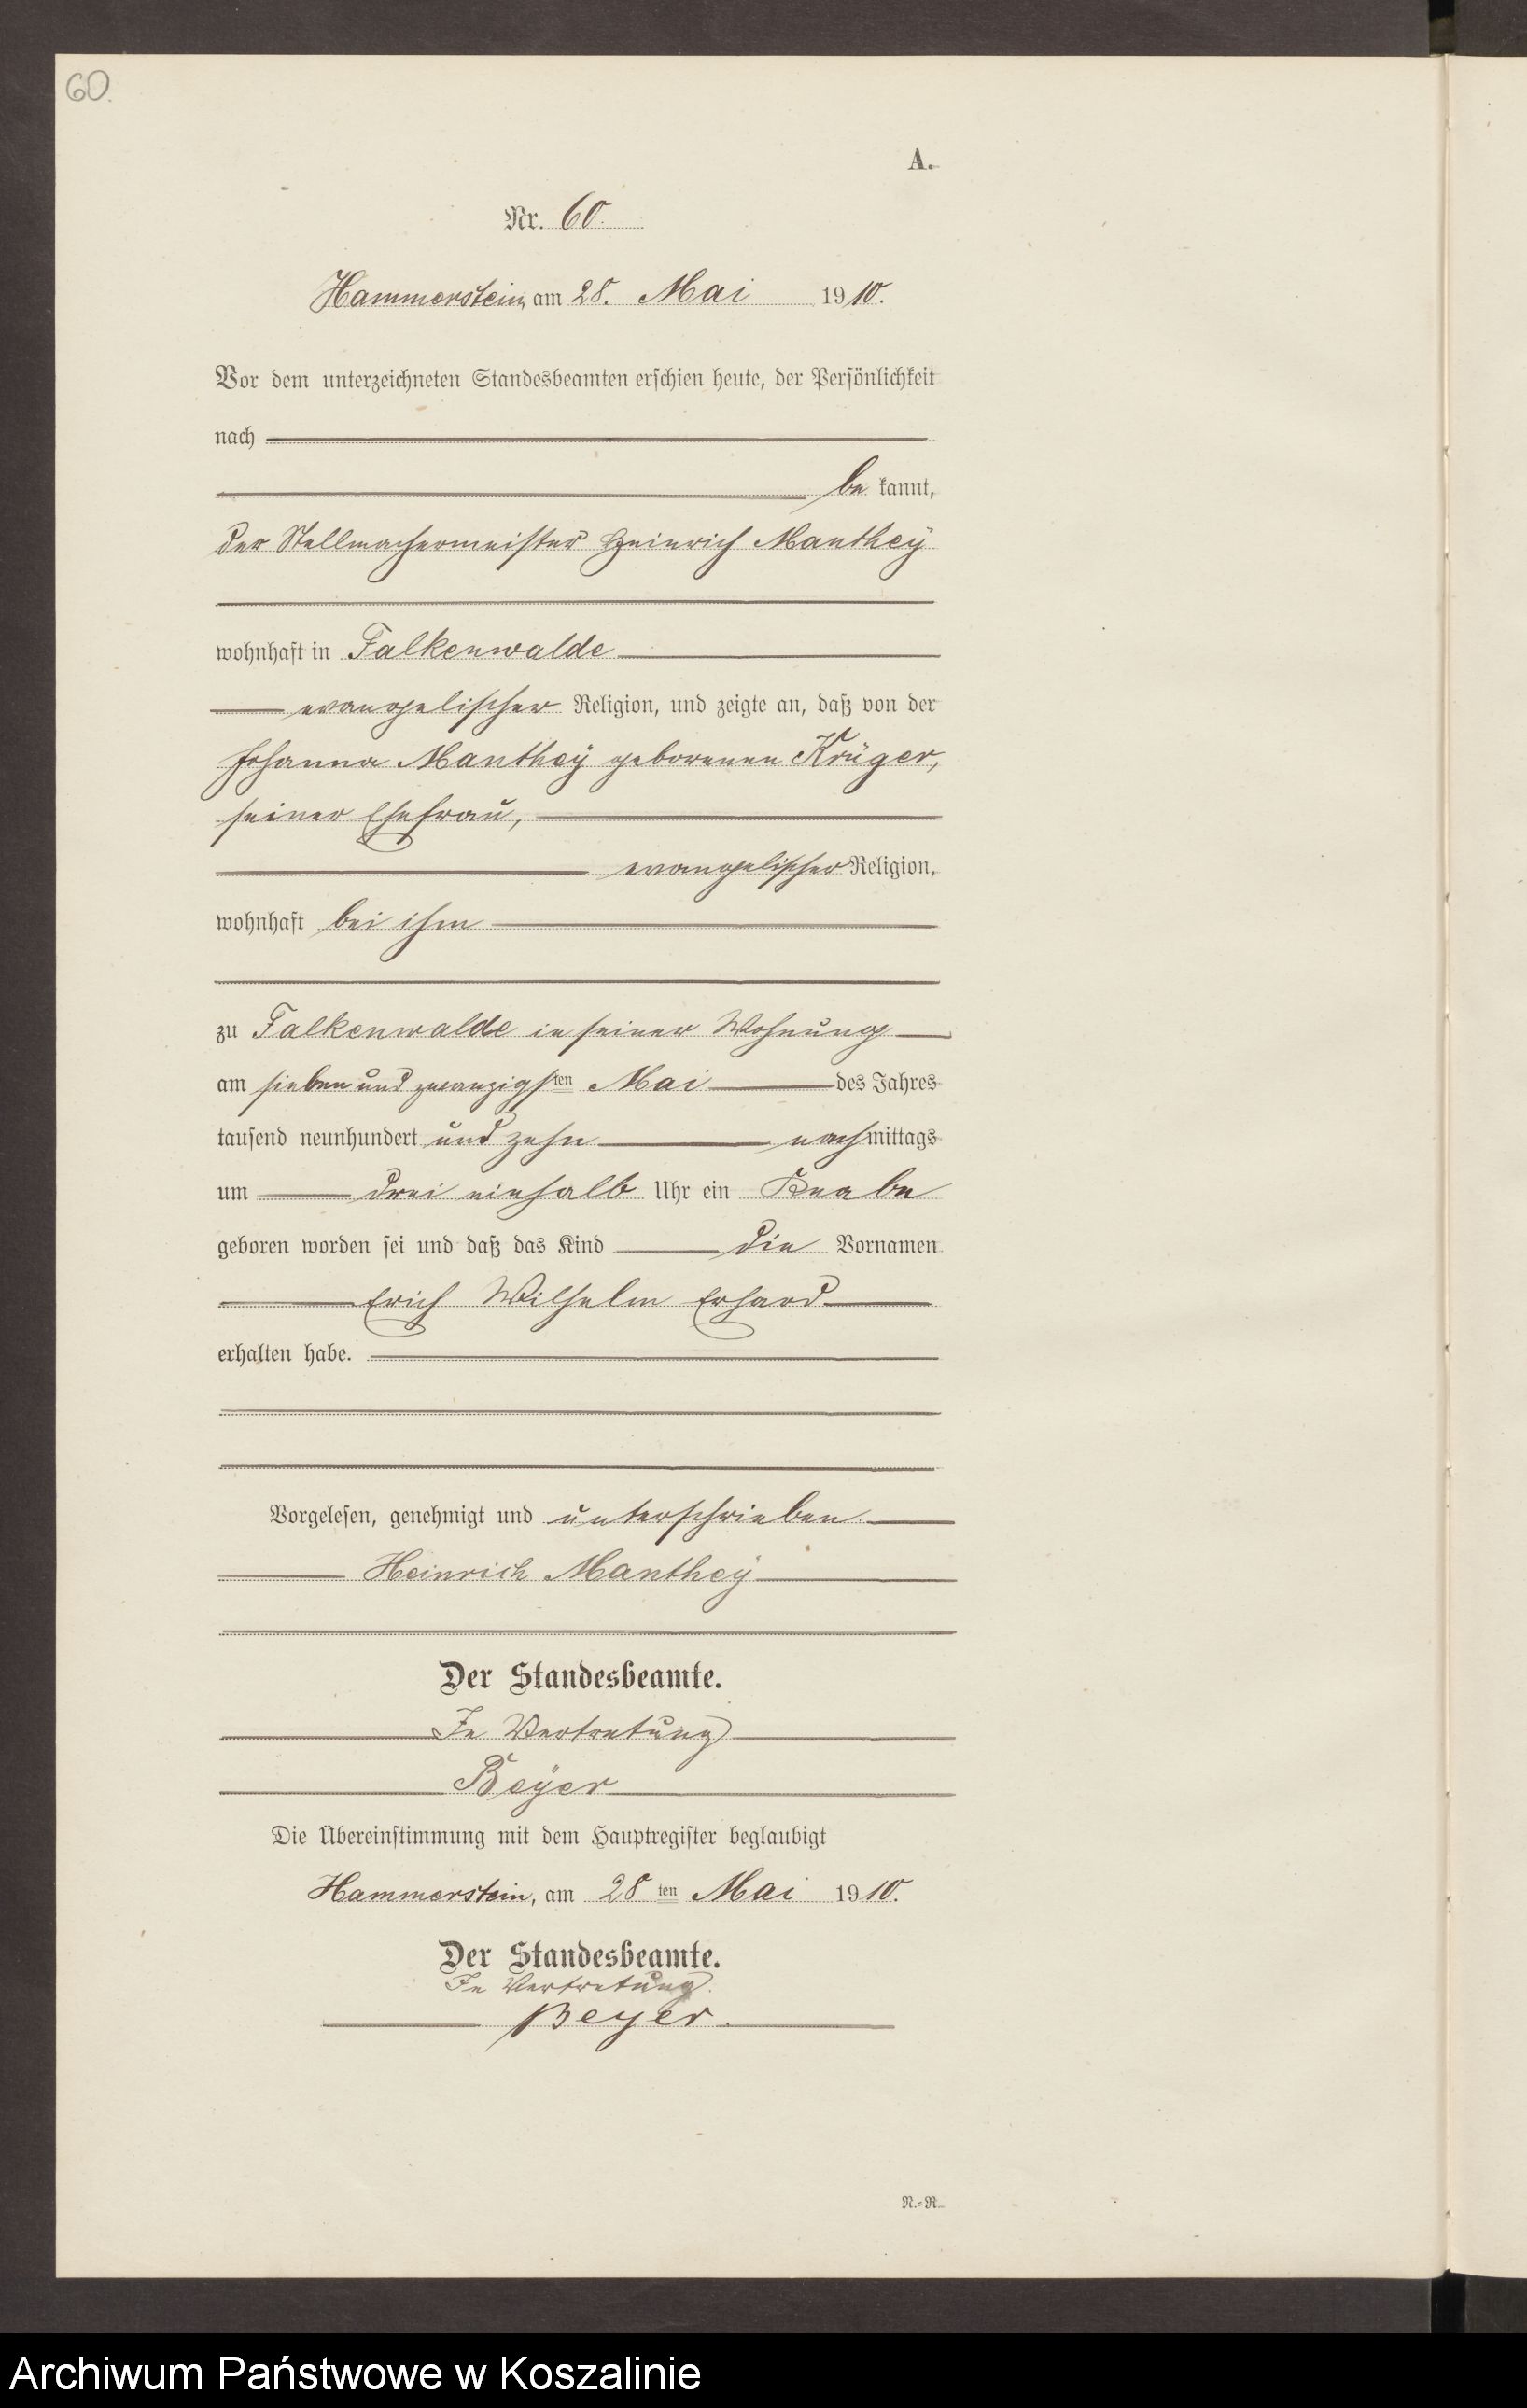 60.
A.
Nr. 60.
Hammerstein, am 28. Mai 1910.
Vor dem unterzeichneten Standesbeamten erschien heute, der Persönlichkeit
nach
be kannt,
der Stellmachermeister Heinrich Manthey
wohnhaft in Falkenwalde
evangelischer Religion, und zeigte an, daß von der
Johanna Manthey geborenen Krüger,
seiner Ehefrau,
evangelischer Religion,
wohnhaft bei ihm
zu Falkenwalde in seiner Wohnung
am sieben und zwanzigsten Mai des Jahres
tausend neunhundert und zehn nachmittags
um drei einhalb Uhr ein Knabe
geboren worden sei und daß das Kind die Vornamen
Erich Wilhelm Erhard
erhalten habe.
Vorgelesen, genehmigt und unterschrieben
Heinrich Manthey
Der Standesbeamte.
In Vertretung
Beyer
Die Übereinstimmung mit dem Hauptregister beglaubigt
Hammerstein, am 28ten Mai 1910.
Der Standesbeamte.
In Vertretung.
Beyer.
N.=R.
Archiwum Państwowe w Koszalinie